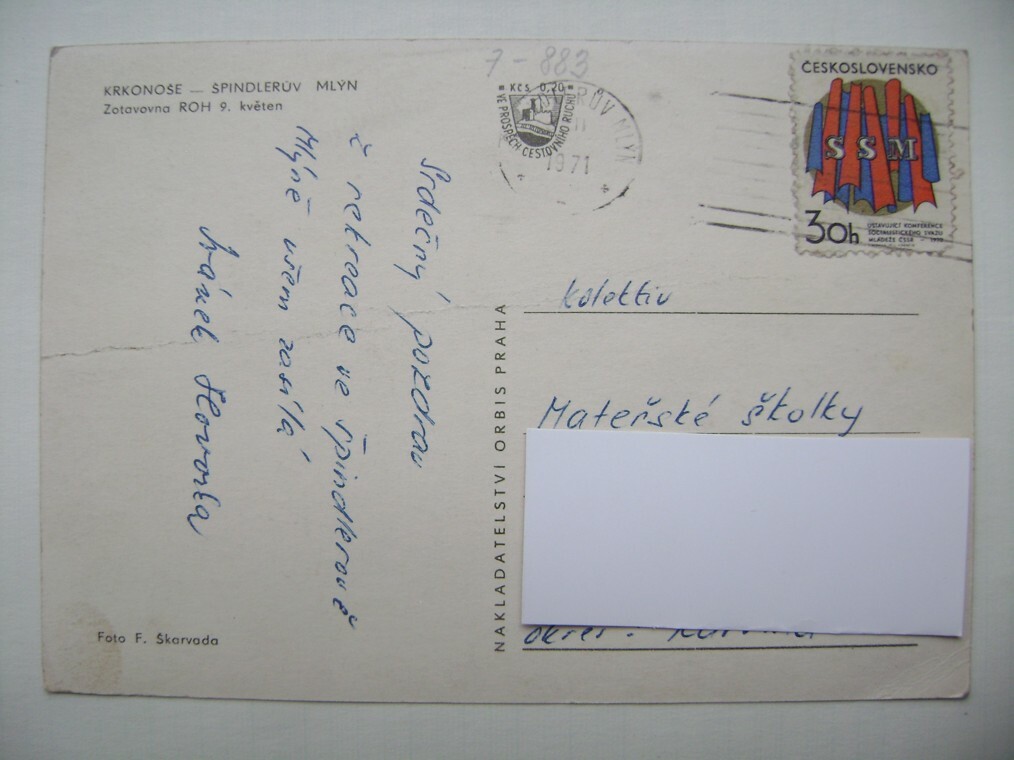 KRKONOŠE — ŠPINDLERŮV MLÝN
Zotavovna ROH 9. květen
Srdečný pozdrav
z rekreace ve Špindlerově
Mlýně všem zasílá
Hovorka
Foto F. Škarvada
NAKLADATELSTVÍ ORBIS PRAHA
7-883
Kčs 0,20
VE PROSPĚCH CESTOVNÍHO RUCHU
MLÝN
1971
ČESKOSLOVENSKO
SSM
30h
USTAVUJÍCÍ KONFERENCE
SOCIALISTICKÉHO SVAZU
MLÁDEŽE ČSSR 1970
Kolektiv
Mateřské školky
okres: